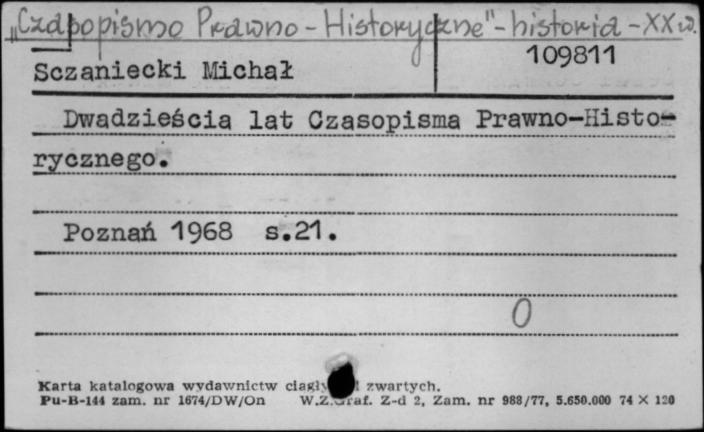 „Czapopismo Prawno-Historyczne"-historia-XX w.
109811
Sczaniecki Michał
Dwadzieścia lat Czasopisma Prawno-Histo-
rycznego.
Poznań 1968 s.21.
0
Karta katalogowa wydawnictw zwartych.
Pu-B-144 zam. nr 1674/DW/On W.Z.Graf. Z-d 2, Zam. nr 988/77, 5.650.000 74 X 120